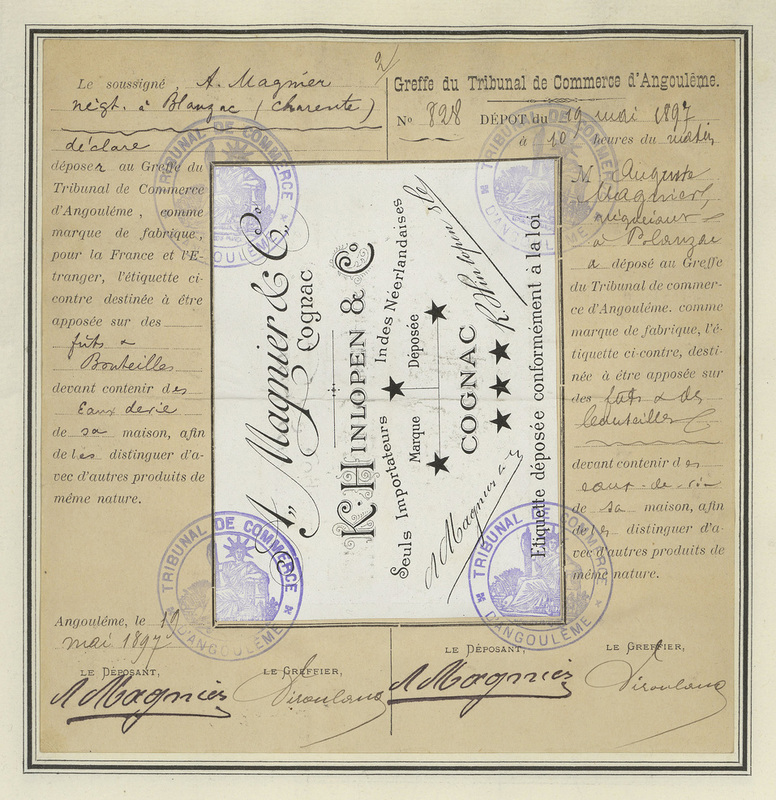 2/
Le soussigné, A. Magnier
négt. à Blanzac (Charente)
déclare
déposer au Greffe du
Tribunal de Commerce
d'Angoulême, comme
marque de fabrique,
pour la France et l'E-
tranger, l'étiquette ci-
contre destinée à être
apposée sur des
fûts &
Bouteilles
devant contenir des
Eaux de vie
de sa maison, afin
de les distinguer d'a-
vec d'autres produits de
même nature.
Angoulême, le 19
mai 1897
LE DÉPOSANT,
LE GREFFIER,
A Magnier
Greffe du Tribunal de Commerce d'Angoulême.
No 828 DÉPOT du 19 mai 1897
à 10 heures du matin
M. Auguste
Magnier,
négociant
à Blanzac
a déposé au Greffe
du Tribunal de commer-
ce d'Angoulême. comme
marque de fabrique, l'é-
tiquette ci-contre, desti-
née à être apposée sur
des fûts & des
bouteilles
devant contenir des
eaux-de-vie
de sa maison, afin
de les distinguer d'a-
vec d'autres produits de
même nature.
LE DÉPOSANT,
LE GREFFIER,
A Magnier
A. Magnier & Co.
Cognac
K. HINLOPEN & Co
Seuls Importateurs Indes Néerlandaises
Marque Déposée
COGNAC
A Magnier & Co
K. Hinlopen & Co
Etiquette déposée conformément à la loi
TRIBUNAL DE COMMERCE
D'ANGOULÊME
TRIBUNAL DE COMMERCE
D'ANGOULÊME
TRIBUNAL DE COMMERCE
D'ANGOULÊME
TRIBUNAL DE COMMERCE
D'ANGOULÊME